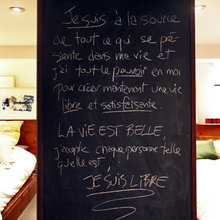 Je suis à la source
de tout ce qui se pré-
sente dans ma vie et
j'ai tout le pouvoir en moi
pour créer maintenant une vie
libre et satisfaisante.
LA VIE EST BELLE,
j'accepte chaque personne telle
qu'elle est
JE SUIS LIBRE